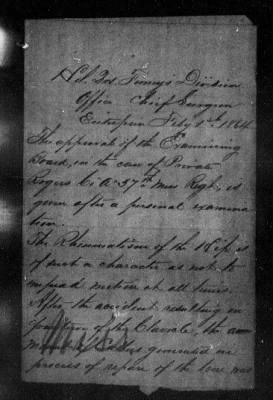 Hd. Qrs. Tenny's Division
Office Chief Surgeon
Enterprise Feby 1st 1864
The approval of the Examining
Board, in the case of Private
Rogers Co A. 37th Miss Regt, is
given after a personal examina
tion.
The Rheumatism of the Hip is
of such a character as not to
impead motion at all times.
After the accident resulting in
of the Clavicle, the
generated in
process of repair of the bone was